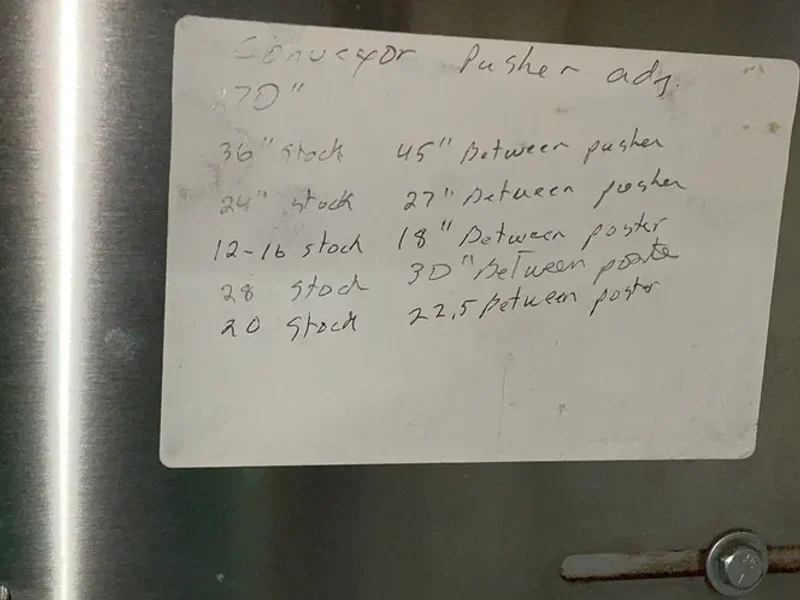 Conveyor Pusher adj.
270"
36" stock 45" Between pusher
24" stock 27" Between pusher
12-16 stock 18" Between puster
28 stock 30" Between
20 stock 22.5 Between puster